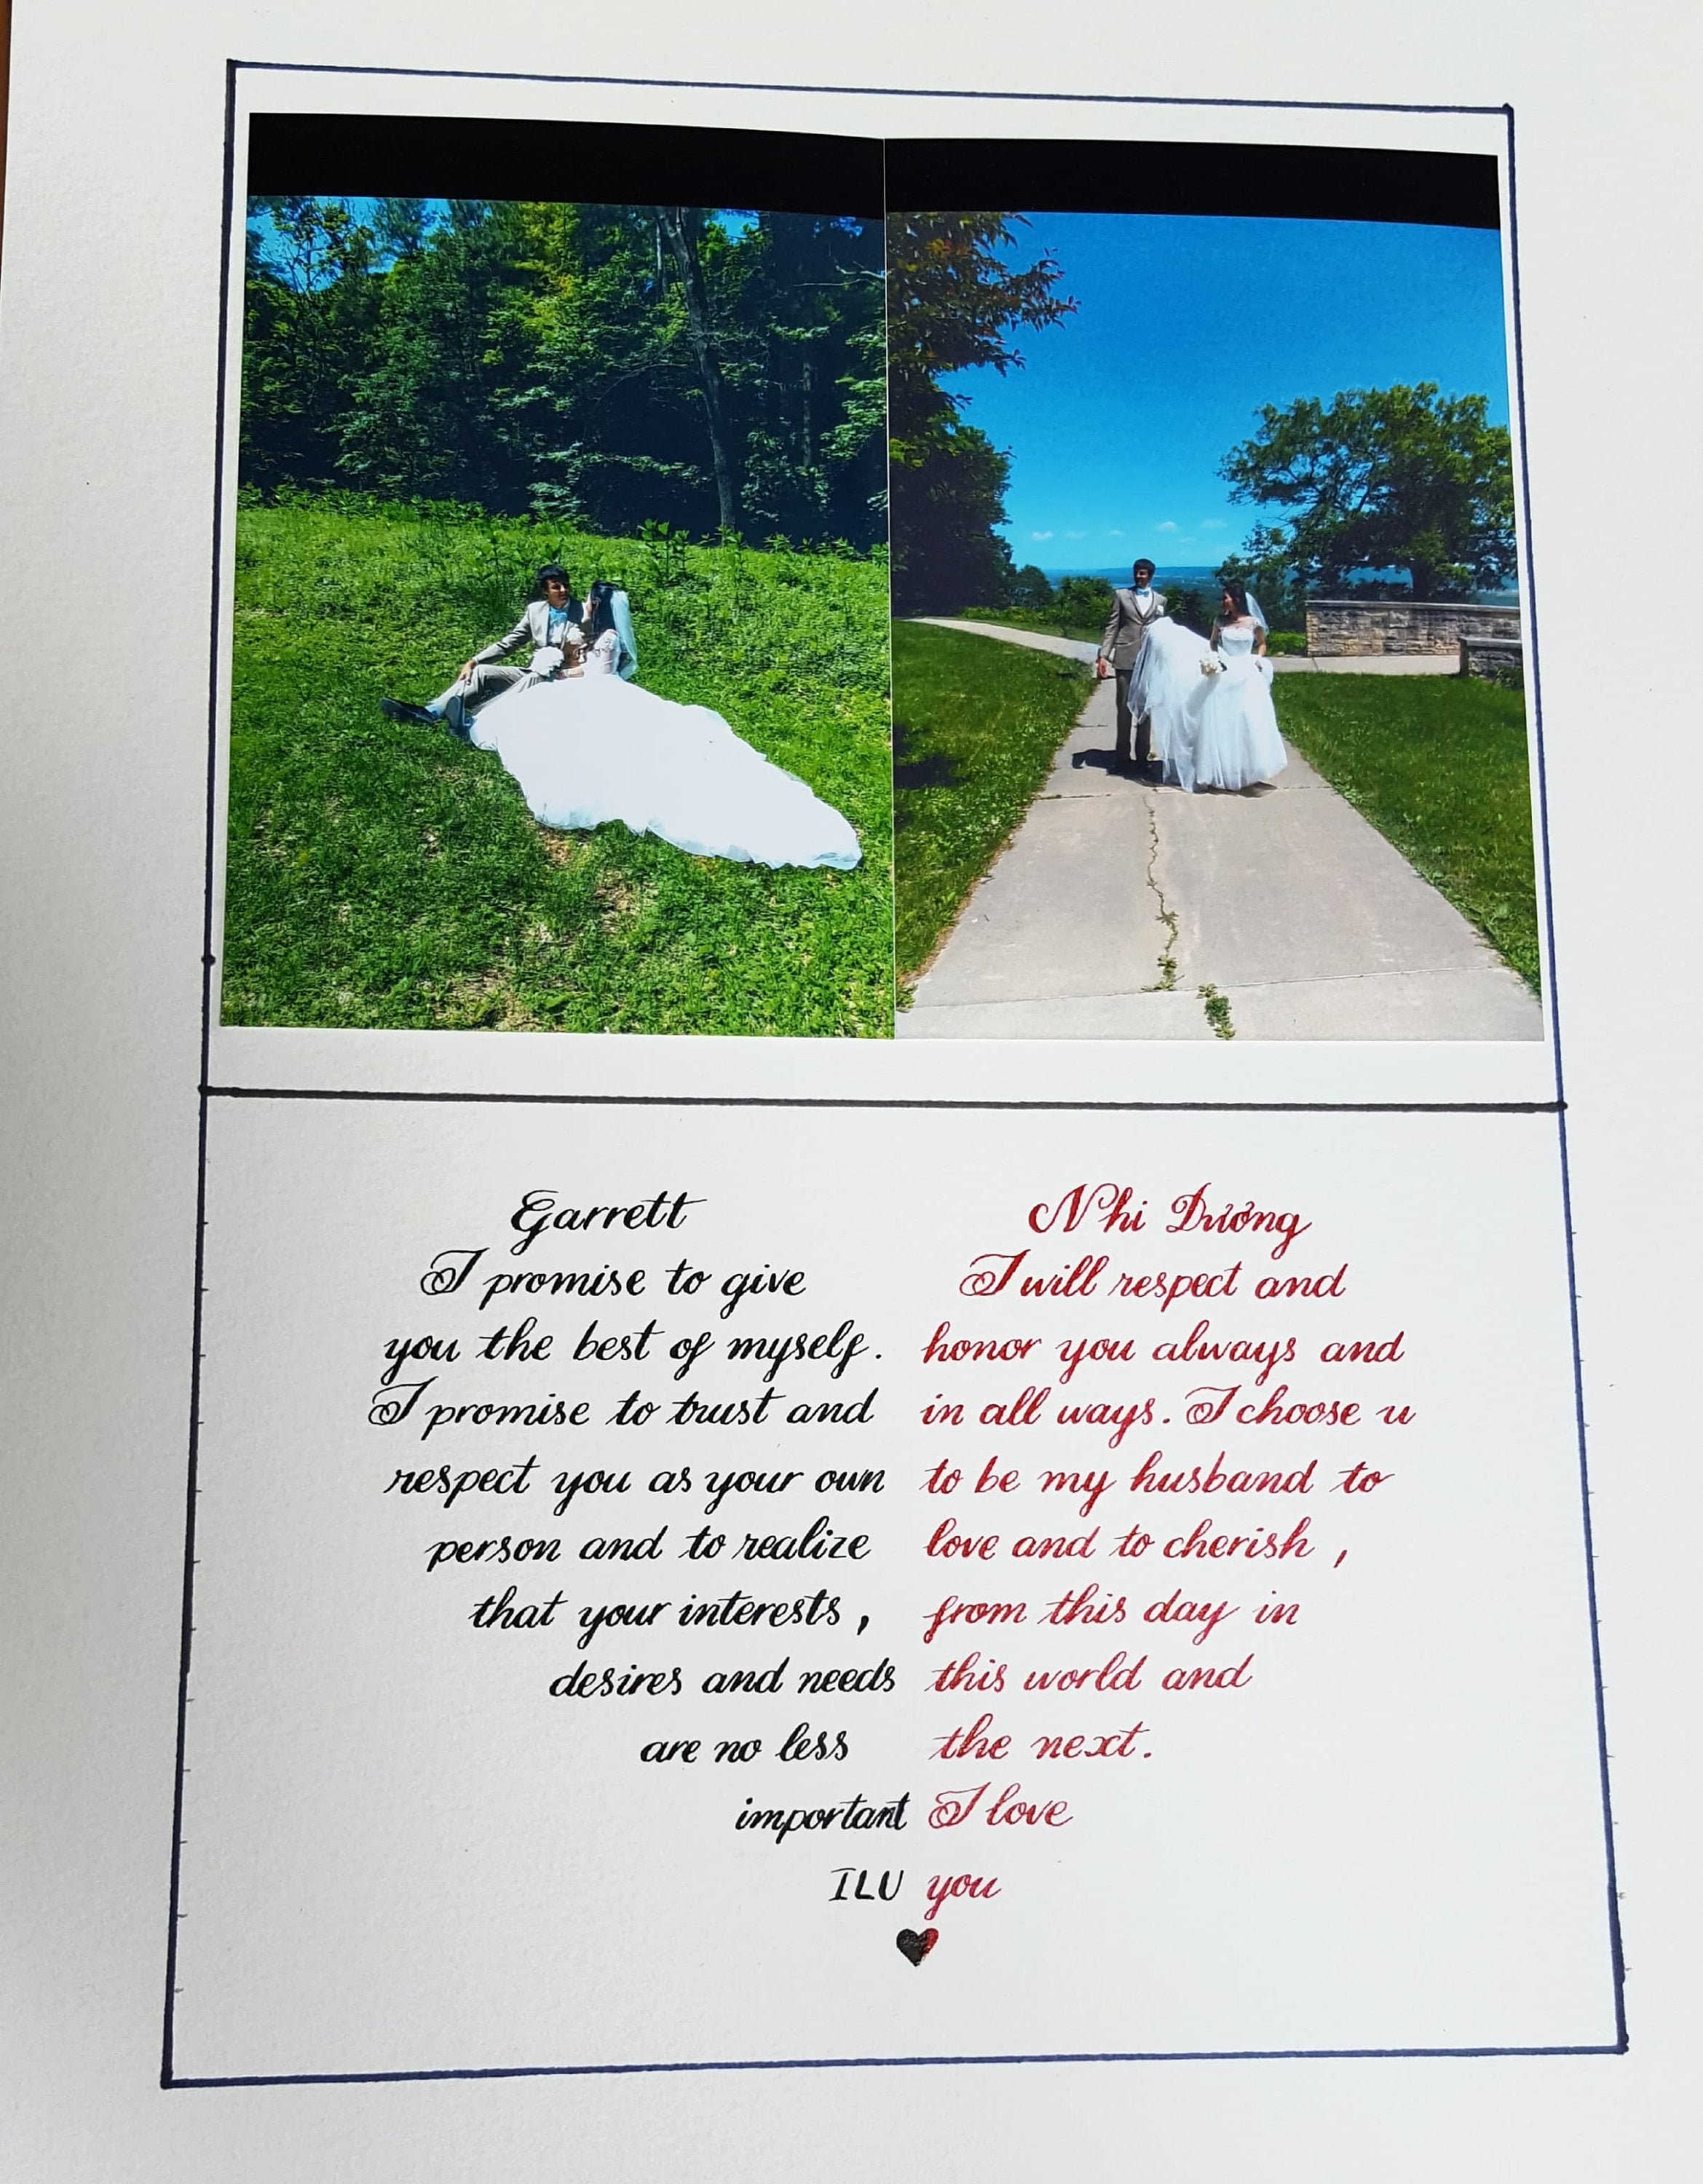 Garrett
I promise to give
you the best of myself.
I promise to trust and
respect you as your own
person and to realize
that your interests,
desires and needs
are no less
important
ILU
Nhi Dương
I will respect and
honor you always and
in all ways. I choose u
to be my husband to
love and to cherish,
from this day in
this world and
the next.
I love
you